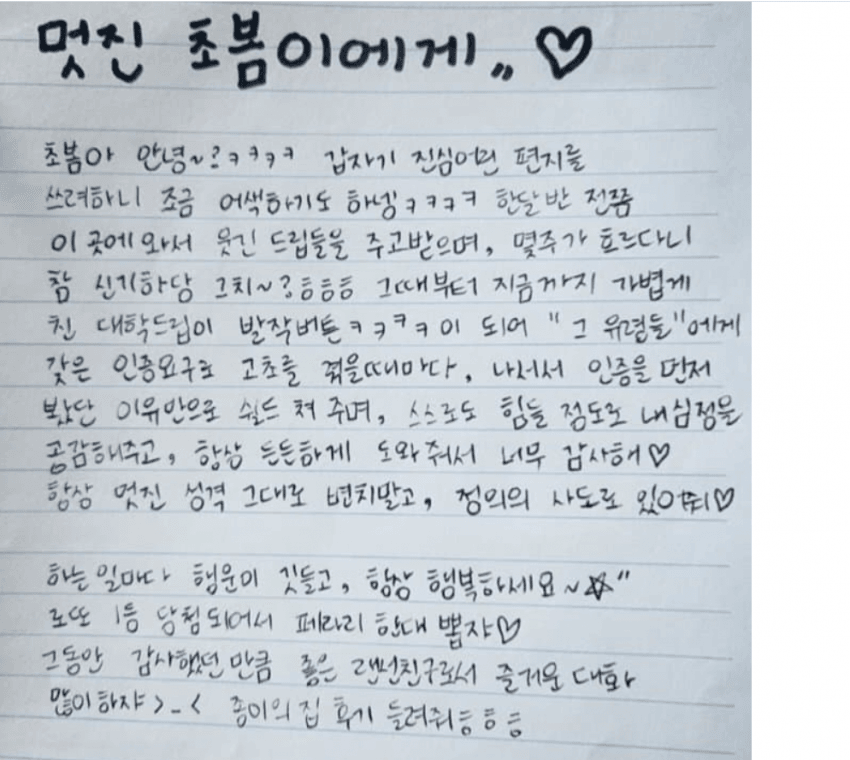 멋진 초봄이에게,, ♡
초봄아 안녕~?ㅋㅋㅋㅋ 갑자기 진심어린 편지를
쓰려하니 조금 어색하기도 하넹ㅋㅋㅋㅋ 한달반 전쯤
이 곳에 와서 웃긴 드립들을 주고받으며, 몇주가 흐르다니
참 신기하당 그치~?ㅎㅎㅎ 그때부터 지금까지 가볍게
친 대학드립이 발작버튼ㅋㅋㅋㅋ이 되어 "그 유령들"에게
갖은 인증요구로 고초를 겪을때마다, 나서서 인증을 먼저
봤단 이유만으로 쉴드 쳐 주며, 스스로도 힘들 정도로 내심정을
공감해주고, 항상 든든하게 도와줘서 너무 감사해♡
항상 멋진 성격 그대로 변치말고, 정의의 사도로 있어줘♡
하는 일마다 행운이 깃들고, 항상 행복하세요~☆"
로또 1등 당첨되어서 페라리 한대 뽑쟈♡
그동안 감사했던 만큼 좋은 랜선친구로서 즐거운 대화
많이하쟈 >_< 종이의 집 후기 들려줘ㅎㅎㅎ